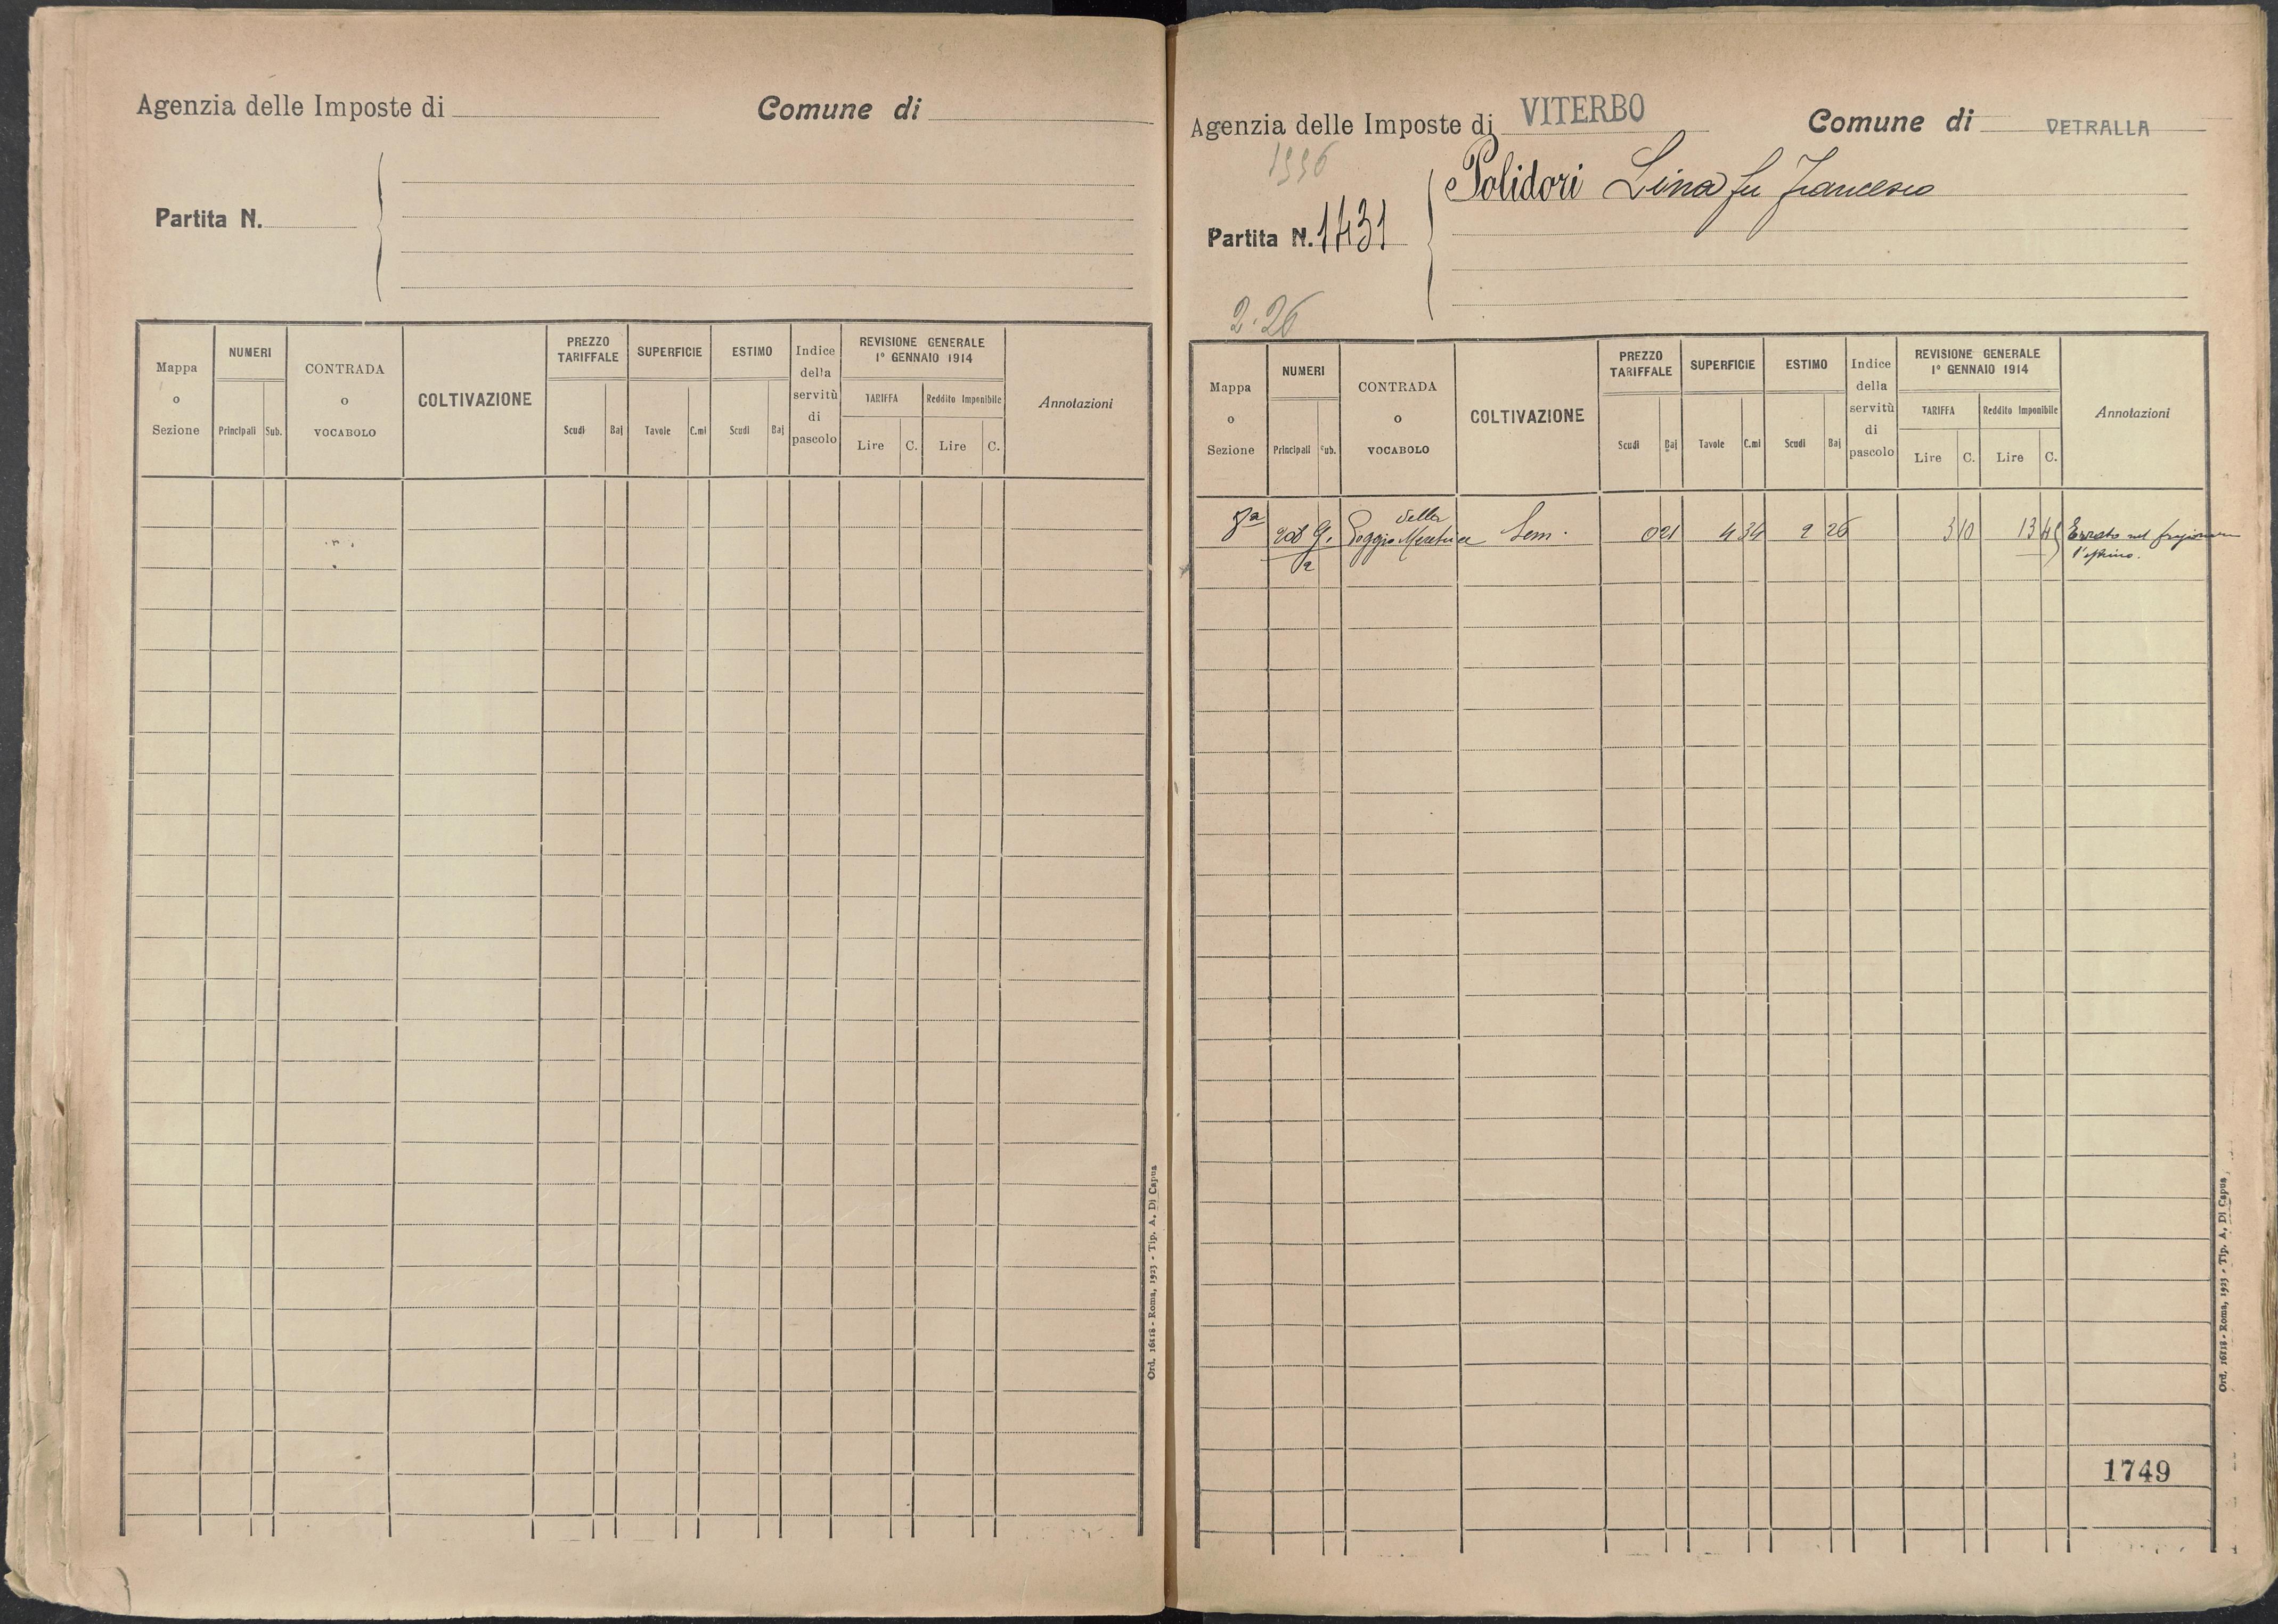 Agenzia delle Imposte di
Comune di
Partita N.
Mappa o Sezione
NUMERI
Principali
Sub.
CONTRADA o VOCABOLO
COLTIVAZIONE
PREZZO TARIFFALE
Scudi
Baj
SUPERFICIE
Tavole
C.mi
ESTIMO
Scudi
Baj
Indice della servitù di pascolo
REVISIONE GENERALE
1° GENNAIO 1914
TARIFFA
Lire
C.
Reddito Imponibile
Lire
C.
Annotazioni
Ord. 16118 - Roma, 1923 - Tip. A. Di Capua
Agenzia delle Imposte di VITERBO
Comune di VETRALLA
1996
Polidori Lina fu Francesco
Partita N. 1431
2.26
Mappa o Sezione
NUMERI
Principali
Sub.
CONTRADA o VOCABOLO
COLTIVAZIONE
PREZZO TARIFFALE
Scudi
Baj
SUPERFICIE
Tavole
C.mi
ESTIMO
Scudi
Baj
Indice della servitù di pascolo
REVISIONE GENERALE
1° GENNAIO 1914
TARIFFA
Lire
C.
Reddito Imponibile
Lire
C.
Annotazioni
della
Poggio Meretrice Sem. 0 21 4 34 2 26 3 10 13 45 Errato nel
l'estimo.
1749
Ord. 16118 - Roma, 1923 - Tip. A. Di Capua